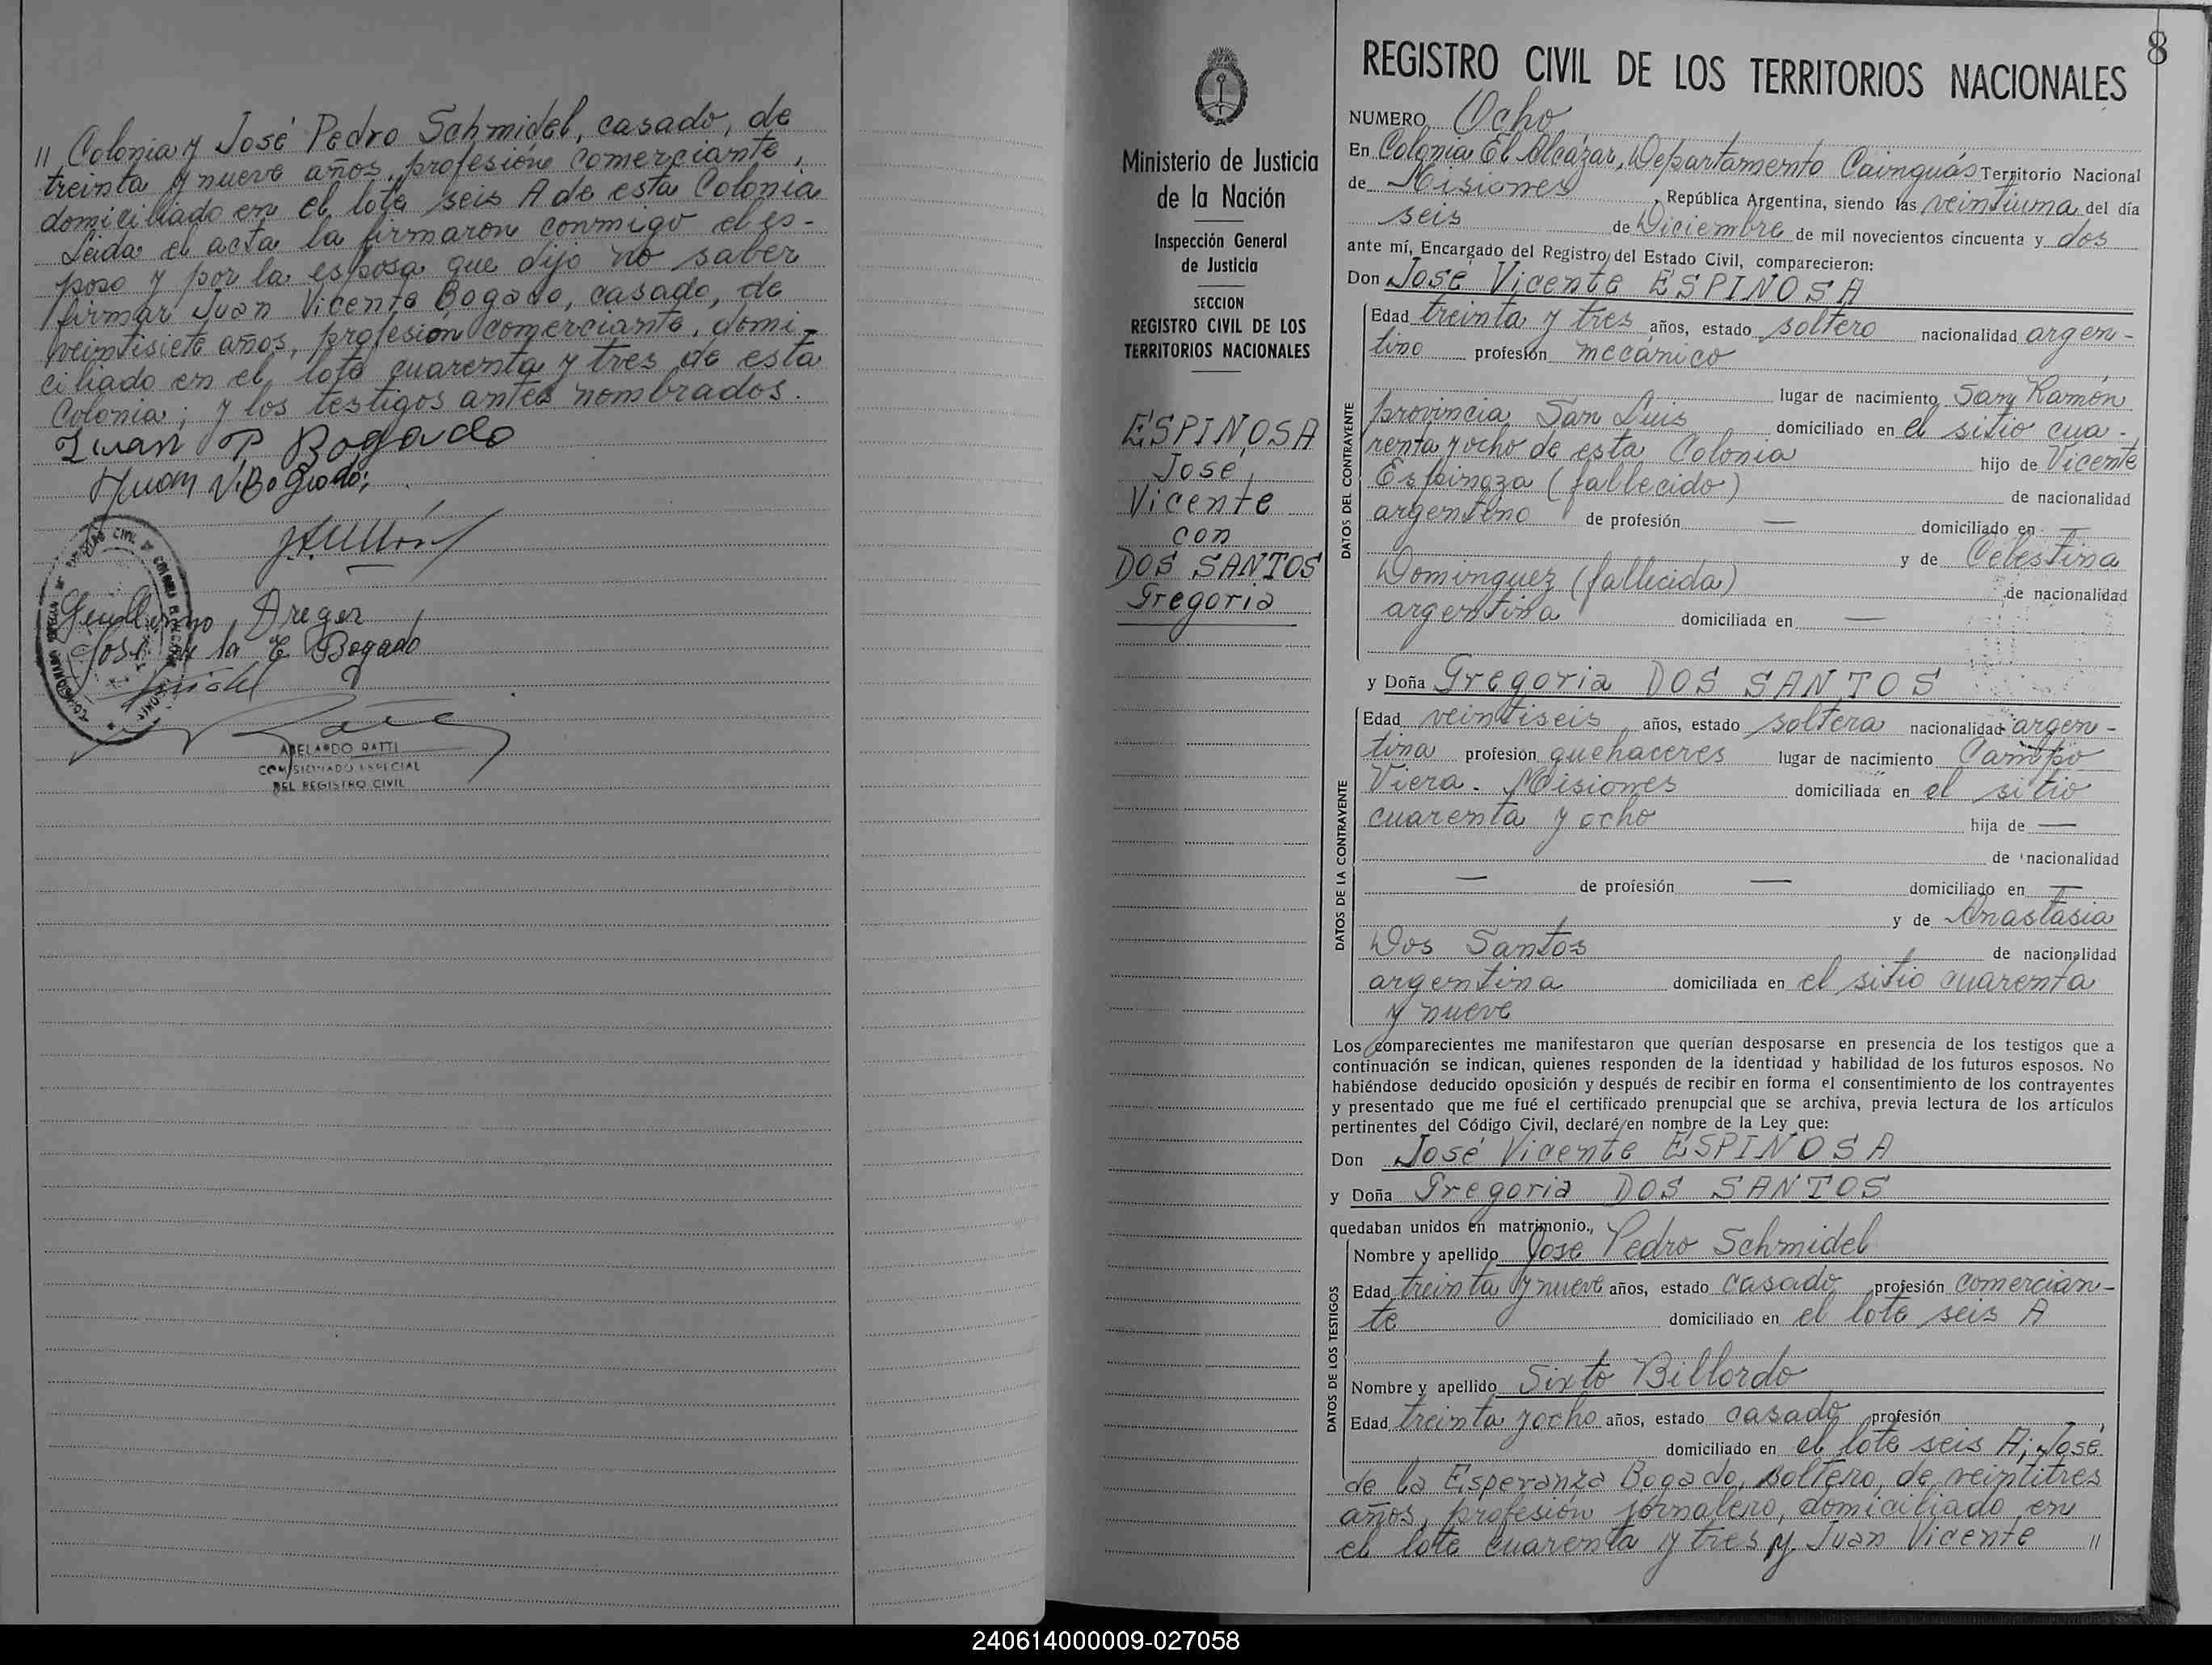 " Colonia y José Pedro Schmidel, casado, de
treinta y nueve años, profesión comerciante,
domiciliado en el lote seis A de esta Colonia
Leida el acta la firmaron conmigo el es-
poso y por la esposa que dijo no saber
firmar Juan Vicente Bogado, casado, de
veintisiete años, profesion comerciante, domi-
ciliado en el lote cuarenta y tres de esta
Colonia; y los testigos antes nombrados.
Juan P Bogado
Juan V. Bogado
Guillermo Dreger
José de la E Bogado
ABELARDO RATTI
COMISIONADO ESPECIAL
DEL REGISTRO CIVIL
8
REGISTRO CIVIL DE LOS TERRITORIOS NACIONALES
Ministerio de Justicia
de la Nación
Inspección General
de Justicia
SECCION
REGISTRO CIVIL DE LOS
TERRITORIOS NACIONALES
ESPINOSA
José
Vicente
con
DOS SANTOS
Gregoria
NUMERO Ocho
En Colonia El Alcázar, Departamento Cainguás Territorio Nacional
de Misiones República Argentina, siendo las veintiuna del día
seis de Diciembre de mil novecientos cincuenta y dos
ante mí, Encargado del Registro del Estado Civil, comparecieron:
Don José Vicente ESPINOSA
DATOS DEL CONTRAYENTE
Edad treinta y tres años, estado soltero nacionalidad argen-
tino profesión mecánico
lugar de nacimiento San Ramón
provincia San Luis domiciliado en el sitio cua-
renta y ocho de esta Colonia hijo de Vicente
Espinoza (fallecido) de nacionalidad
argentino de profesión — domiciliado en —
y de Celestina
Dominguez (fallecida) de nacionalidad
argentina domiciliada en —
y Doña Gregoria DOS SANTOS
DATOS DE LA CONTRAYENTE
Edad veintiseis años, estado soltera nacionalidad argen-
tina profesión quehaceres lugar de nacimiento Campo
Viera. Misiones domiciliada en el sitio
cuarenta y ocho hija de —
de nacionalidad
— de profesión — domiciliado en —
y de Anastasia
Dos Santos de nacionalidad
argentina domiciliada en el sitio cuarenta
y nueve
Los comparecientes me manifestaron que querían desposarse en presencia de los testigos que a
continuación se indican, quienes responden de la identidad y habilidad de los futuros esposos. No
habiéndose deducido oposición y después de recibir en forma el consentimiento de los contrayentes
y presentado que me fué el certificado prenupcial que se archiva, previa lectura de los artículos
pertinentes del Código Civil, declaré en nombre de la Ley que:
Don José Vicente ESPINOSA
y Doña Gregoria DOS SANTOS
quedaban unidos en matrimonio.,
DATOS DE LOS TESTIGOS
Nombre y apellido José Pedro Schmidel
Edad treinta y nueve años, estado casado profesión comercian-
te domiciliado en el lote seis A
Nombre y apellido Sixto Billordo
Edad treinta y ocho años, estado casado profesión
domiciliado en el lote seis A; José
de la Esperanza Bogado, soltero, de veintitres
años, profesión jornalero, domiciliado en
el lote cuarenta y tres y Juan Vicente "
240614000009-027058